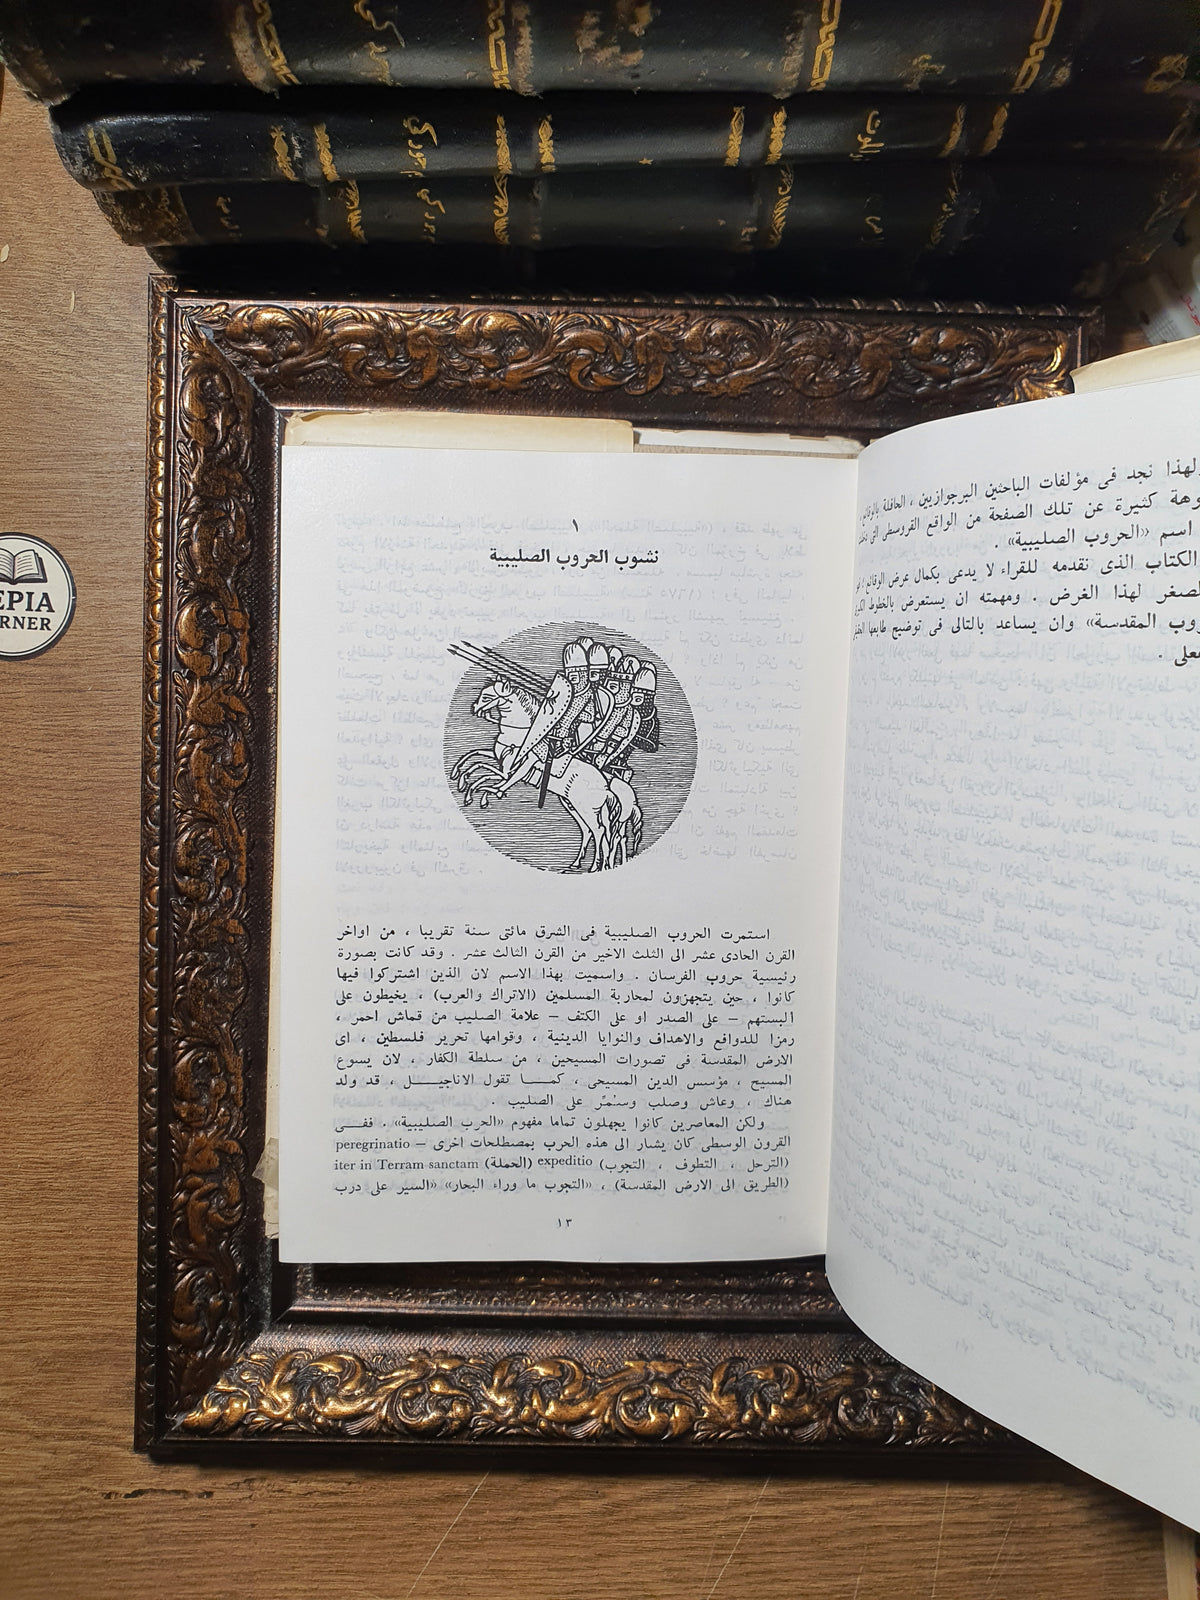 ١
نشوب الحروب الصليبية
استمرت الحروب الصليبية فى الشرق مائتى سنة تقريبا ، من اواخر
القرن الحادى عشر الى الثلث الاخير من القرن الثالث عشر . وقد كانت بصورة
رئيسية حروب الفرسان . واسميت بهذا الاسم لان الذين اشتركوا فيها
كانوا ، حين يتجهزون لمحاربة المسلمين (الاتراك والعرب) ، يخيطون على
البستهم – على الصدر او على الكتف – علامة الصليب من قماش احمر ،
رمزا للدوافع والاهداف والنوايا الدينية ، وقوامها تحرير فلسطين ، اى
الارض المقدسة فى تصورات المسيحين ، من سلطة الكفار . لان يسوع
المسيح ، مؤسس الدين المسيحى ، كمـــا تقول الاناجيـــل ، قد ولد
هناك ، وعاش وصلب وسُمّر على الصليب .
ولكن المعاصرين كانوا يجهلون تماما مفهوم «الحرب الصليبية» . ففـــى
القرون الوسطى كان يشار الى هذه الحرب بمصطلحات اخرى – peregrinatio
(الترحل ، التطوف ، التجوب) expeditio (الحملة) iter in Terram sanctam
(الطريق الى الارض المقدسة) ، «التجوب ما وراء البحار» «السير على درب
١٣
لهذا نجد فى مؤلفات الباحثين البرجوازيين ، الحافلة
كثيرة عن تلك الصفحة من الواقع القروسطى
اسم «الحروب الصليبية» .
الكتاب الذى نقدمه للقراء لا يدعى بكمال عرض الوقائع
لهذا الغرض . ومهمته ان يستعرض بالخطوط
المقدسة» وان يساعد بالتالى فى توضيح طابعها
EPIA
RNER